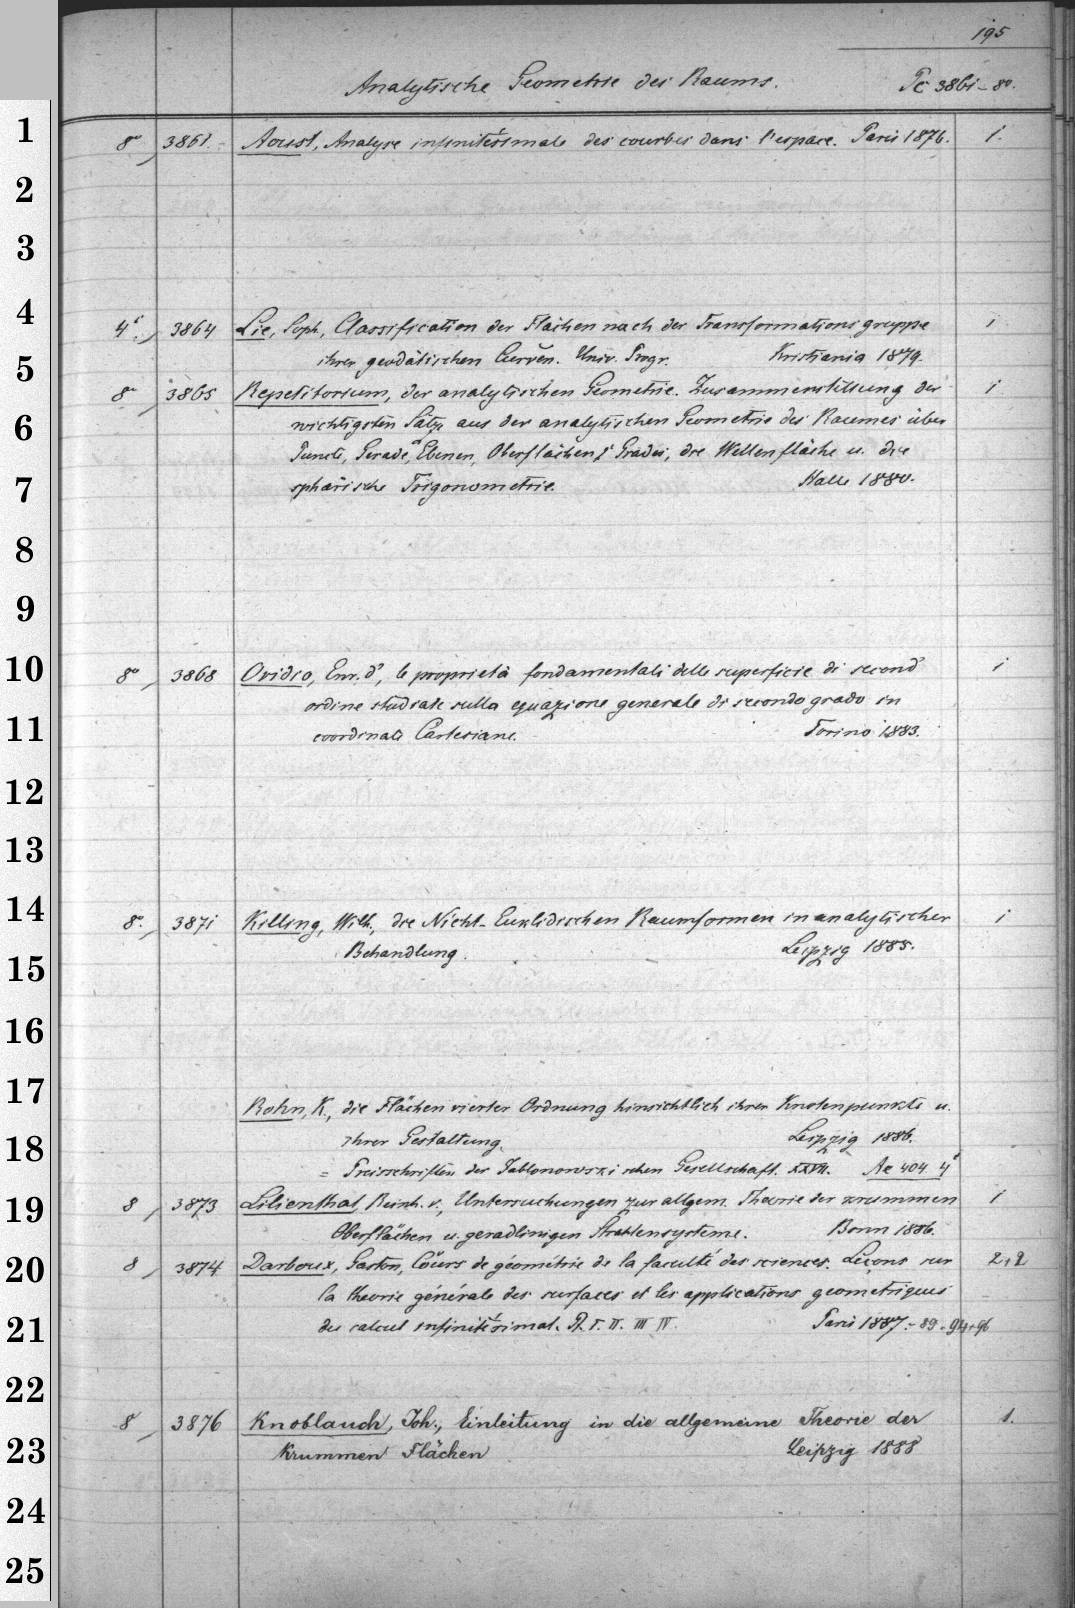 195
Analytische Geometrie des Raums. Pc 3861–80.
1
8° 3861. Aoust, Analyse infinitésimale des courbes dans l'espace. Paris 1876. 1.
2
3
4
4° 3864 Lie, Soph, Classification der Flächen nach der Transformationsgruppe 1
5
ihrer geodätischen Curven. Univ. Progr. Kristiania 1879.
8° 3865 Repetitorium, der analytischen Geometrie. Zusammenstellung der 1
6
wichtigsten Sätze aus der analytischen Geometrie des Raumes über
Puncte, Gerade, Ebenen, Oberflächen 2 Grades, die Wellenfläche u. die
7
sphärische Trigonometrie. Halle 1880.
8
9
10
8° 3868 Ovidio, Enr. d', le proprietà fondamentali delle superficie di second'
ordine studiate sulla equazione generale di secondo grado in
11
coordinate Cartesiane. Torino 1883.
12
13
14
8° 3871 Killing, Wilh., die Nicht-Euklidischen Raumformen in analytischer 1
15
Behandlung. Leipzig 1885.
16
17
Rohn, K., die Flächen vierter Ordnung hinsichtlich ihrer Knotenpunkte u.
18
ihrer Gestaltung. Leipzig 1886.
= Preisschriften der Jablonowski schen Gesellschaft. XXVII. Ac 404 4°
19
8 3873 Lilienthal, Reinh. v., Untersuchungen zur allgem. Theorie der krummen 1
Oberflächen u. geradlinigen Strahlensysteme. Bonn 1886.
20
8 3874 Darboux, Gaston, Cours de géométrie de la faculté des sciences. Leçons sur 2+2
la theorie générale des surfaces et les applications geometriques
21
du calcul infinitésimal. P. I. II. III IV. Paris 1887.-89.-94+96
22
8 3876 Knoblauch, Joh., Einleitung in die allgemeine Theorie der 1.
23
Krummen Flächen Leipzig 1888
24
25